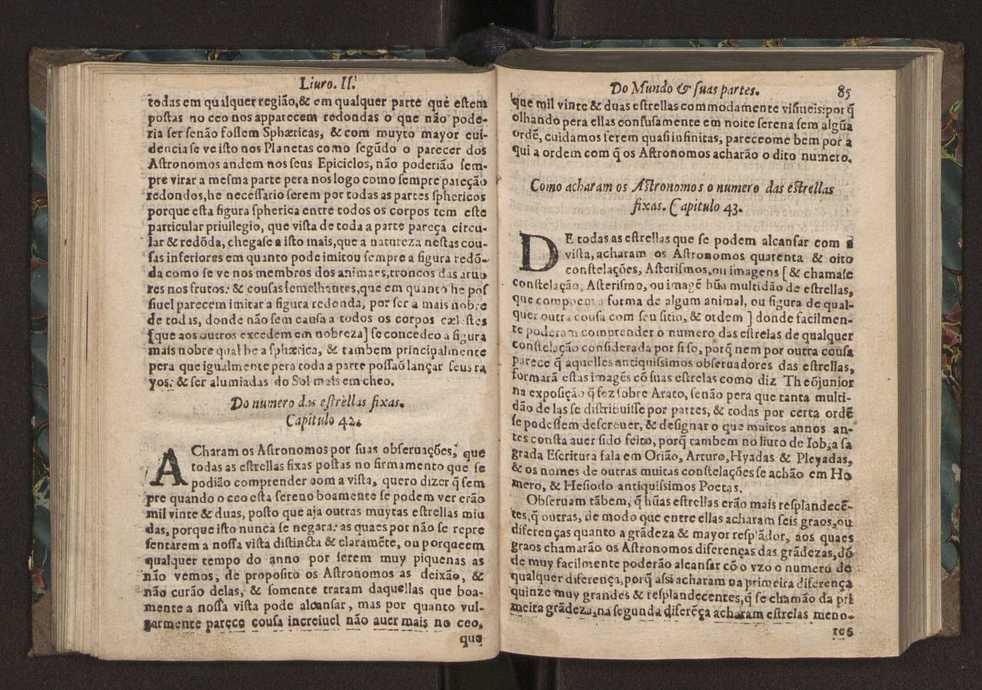 Liuro. II.
todas em qualquer região,& em qualquer parte que estem
postas no ceo nos apparecem redondas o que não pode-
ria ser senão fossem Sphæricas, & com muyto mayor eui-
dencia se ve isto nos Planetas como segũdo o parecer dos
Astronomos andem nos seus Epiciclos, não poderião sem-
pre virar a mesma parte pera nos logo como sempre pareção
redondos,he necessario serem por todas as partes sphericos
porque esta figura spherica entre todos os corpos tem este
particular priuilegio, que vista de toda a parte pareça circu-
lar & redõda, chegase a isto mais,que a natureza nestas cou-
sas inferiores em quanto pode imitou sempre a figura redõ-
da como se ve nos membros dos animaes,troncos das aruo
res nos frutos: & cousas semelhantes,que em quanto he pos
siuel parecem imitar a figura redonda, por ser a mais nobre
de todas, donde não sem causa a todos os corpos cælestes
[que aos outros excedem em nobreza] se concedeo a figura
mais nobre qual he a sphærica, & tambem principalmente
pera que igualmente pera toda a parte possaõ lançar seus ra
yos: & ser alumiadas do Sol mais em cheo.
Do numero das estrellas fixas.
Capitulo 42.
ACharam os Astronomos por suas obseruações, que
todas as estrellas fixas postas no firmamento que se
podião comprender com a vista, quero dizer q̃ sem
pre quando o ceo esta sereno boamente se podem ver erão
mil vinte & duas, posto que aja outras muytas estrellas miu
das, porque isto nunca se negara: as quaes por não se repre
sentarem a nossa vista distincta & claramẽte, ou porque em
qualquer tempo do anno por serem muy piquenas as
não vemos, de proposito os Astronomos as deixão, &
não curão delas, & somente tratam daquellas que boa-
mente a nossa vista pode alcansar, mas por quanto vul-
garmente pareçe cousa increiuel não auer mais no ceo,
que
Do Mundo & suas partes. 85
que mil vinte & duas estrellas commodamente visiueis:por q̃
olhando pera ellas confusamente em noite serena sem algũa
ordẽ, cuidamos serem quasi infinitas, pareceome bem por a
qui a ordem com q̃ os Astronomos acharão o dito numero.
Como acharam os Astronomos o numero das estrellas
fixas. Capitulo 43.
DE todas as estrellas que se podem alcansar com a
vista, acharam os Astronomos quarenta & oito
constelações, Asterismos,ou imagens [& chamase
constelação, Asterismo, ou imagẽ hũa multidão de estrellas,
que compoem a forma de algum animal, ou figura de qual-
quer outra cousa com seu sitio, & ordem ] donde facilmen-
te poderam comprender o numero das estrelas de qualquer
constelação considerada por si so, porq̃ nem por outra cousa
parece q̃ aquelles antiquissimos obseruadores das estrellas,
formarã estas imagẽs cõ suas estrelas como diz Theõ junior
na exposição q̃ fez sobre Arato, senão pera que tanta multi-
dão de las se distribuisse por partes, & todas por certa ordẽ
se podessem descreuer, & designar o que muitos annos an-
tes consta auer sido feito, porq̃ tambem no liuro de Iob,a sa
grada Escritura fala em Orião, Arturo, Hyadas & Pleyadas,
& os nomes de outras muitas constelações se achão em Ho
mero, & Hesiodo antiquissimos Poetas.
Obseruam tãbem, q̃ hũas estrellas erão mais resplandecẽ-
tes,q̃ outras, de modo que entre ellas acharam seis graos,ou
diferenças quanto a grãdeza & mayor respl̃ador, aos quaes
graos chamarão os Astronomos diferenças das grãdezas,dõ
de muy facilmente poderão alcansar cõ o vzo o numero de
qualquer diferença,porq̃ assi acharam na primeira diferença
quinze muy grandes & resplandecentes,q̃ se chamão da pri
meira grãdeza,na segunda diferẽça acharam estrelas meno-
res